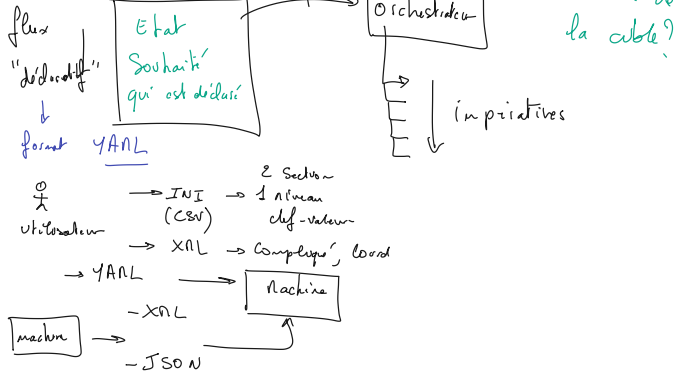 flux
"déclaratif"
format YAML
Etat
Souhaité
qui est déclaré
Orchestrateur
la cible?
impératives
utilisateur
INI
(CSV)
2 Section
1 niveau
clef-valeur
XML
Compliqué, lourd
YAML
Machine
machine
-XML
-JSON